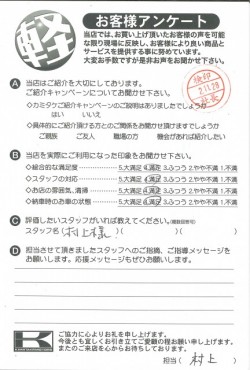 軽
お客様アンケート
当店では、お買い上げ頂いたお客様の声を可能
な限り現場に反映し、お客様により良い商品と
サービスを提供する事に努めています。
大変お手数ですが是非お声をお聞かせ下さい。
A 当店はご紹介を大切にしております。
ご紹介キャンペーンについてお聞かせ下さい。
◇カミタケご紹介キャンペーンのご説明はありましたでしょうか
はい いいえ
◇具体的にご紹介頂ける方とのご関係をお聞かせ頂けますでしょうか
ご親族 ご友人 職場の方 機会があれば紹介したい
B 当店を実際にご利用になった印象をお聞かせ下さい。
◇総合的な満足度 5.大満足 4.満足 3.ふつう 2.やや不満 1.不満
◇スタッフの対応 5.大満足 4.満足 3.ふつう 2.やや不満 1.不満
◇お店の雰囲気、清掃 5.大満足 4.満足 3.ふつう 2.やや不満 1.不満
◇納車時のお車の状態 5.大満足 4.満足 3.ふつう 2.やや不満 1.不満
C 評価したいスタッフがいれば教えてください。(複数回答可)
スタッフ名(村上様)( )( )
D 担当させて頂きましたスタッフへのご指摘、ご指導メッセージを
お願いします。応援メッセージもぜひお願いします。
K
ご協力に心よりお礼を申し上げます。
今後とも宜しくお引き立てご愛顧の程お願い申し上げます。
またのご来店を心からお待ちしております。
担当(村上)